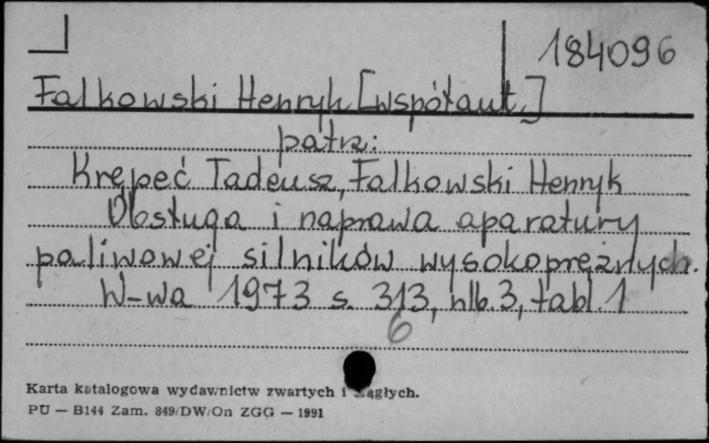 184096
Falkowski Henryk [współaut.]
patrz:
Krępeć Tadeusz, Falkowski Henryk
Obsługa i naprawa aparatury
paliwowej silników wysokoprężnych.
W-wa 1973 s. 313, nlb. 3, tabl. 1
6
Karta katalogowa wydawnictw zwartych i ciągłych.
PU — B144 Zam. 849/DW/On ZGG — 1991